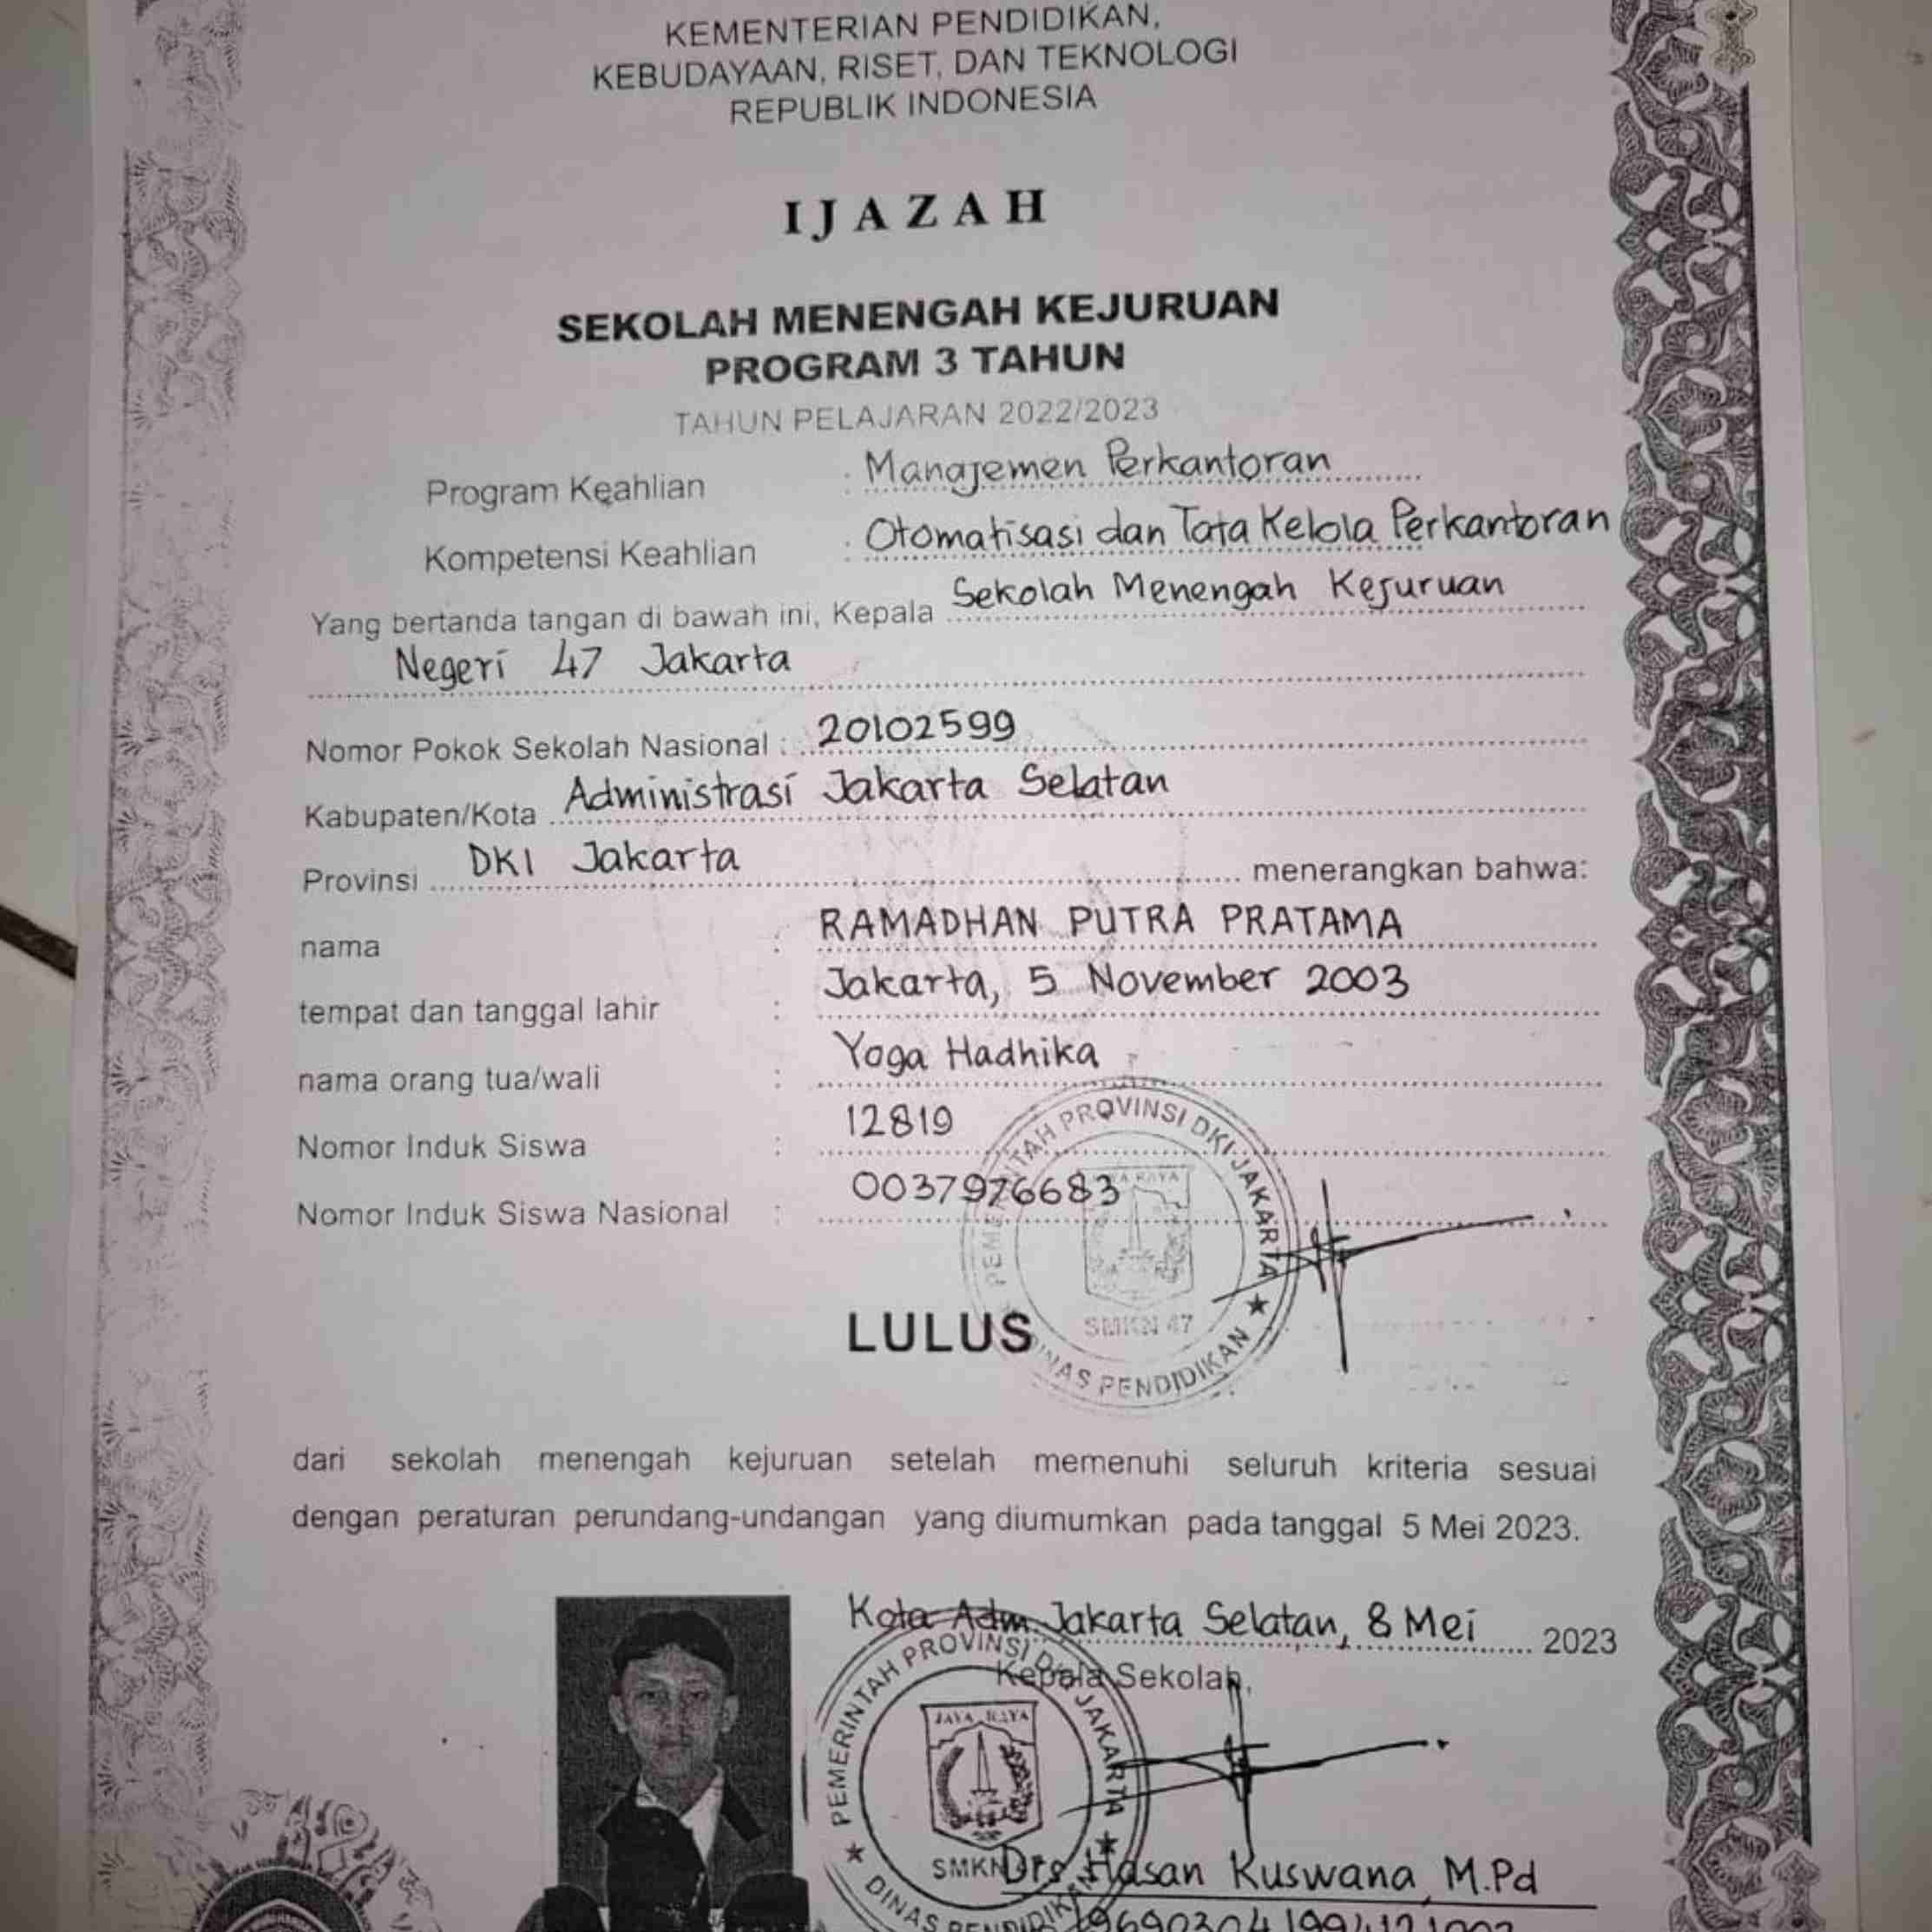 KEMENTERIAN PENDIDIKAN,
KEBUDAYAAN, RISET, DAN TEKNOLOGI
REPUBLIK INDONESIA
IJAZAH
SEKOLAH MENENGAH KEJURUAN
PROGRAM 3 TAHUN
TAHUN PELAJARAN 2022/2023
Program Keahlian : Manajemen Perkantoran
Kompetensi Keahlian : Otomatisasi dan Tata Kelola Perkantoran
Yang bertanda tangan di bawah ini, Kepala Sekolah Menengah Kejuruan
Negeri 47 Jakarta
Nomor Pokok Sekolah Nasional : 20102599
Kabupaten/Kota Administrasi Jakarta Selatan
Provinsi DKI Jakarta menerangkan bahwa:
nama : RAMADHAN PUTRA PRATAMA
tempat dan tanggal lahir : Jakarta, 5 November 2003
nama orang tua/wali : Yoga Hadhika
Nomor Induk Siswa : 12819
Nomor Induk Siswa Nasional : 0037976683
PEMERINTAH PROVINSI DKI JAKARTA
JAYA RAYA
SMKN 47
DINAS PENDIDIKAN
LULUS
dari sekolah menengah kejuruan setelah memenuhi seluruh kriteria sesuai
dengan peraturan perundang-undangan yang diumumkan pada tanggal 5 Mei 2023.
Kota Adm. Jakarta Selatan, 8 Mei 2023
Kepala Sekolah,
PEMERINTAH PROVINSI DKI JAKARTA
JAYA RAYA
SMKN
DINAS PENDIDIKAN
Drs Hasan Kuswana, M.Pd